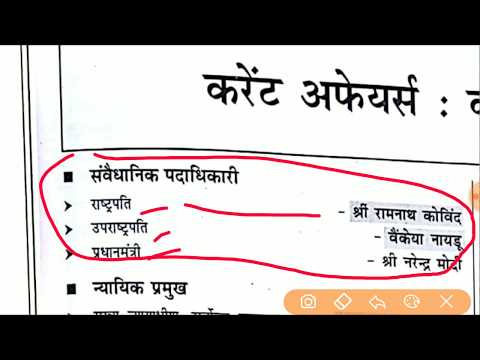 करेंट अफेयर्स :
■ संवैधानिक पदाधिकारी
➤ राष्ट्रपति - श्री रामनाथ कोविंद
➤ उपराष्ट्रपति - वैंकेया नायडू
➤ प्रधानमंत्री - श्री नरेन्द्र मोदी
■ न्यायिक प्रमुख